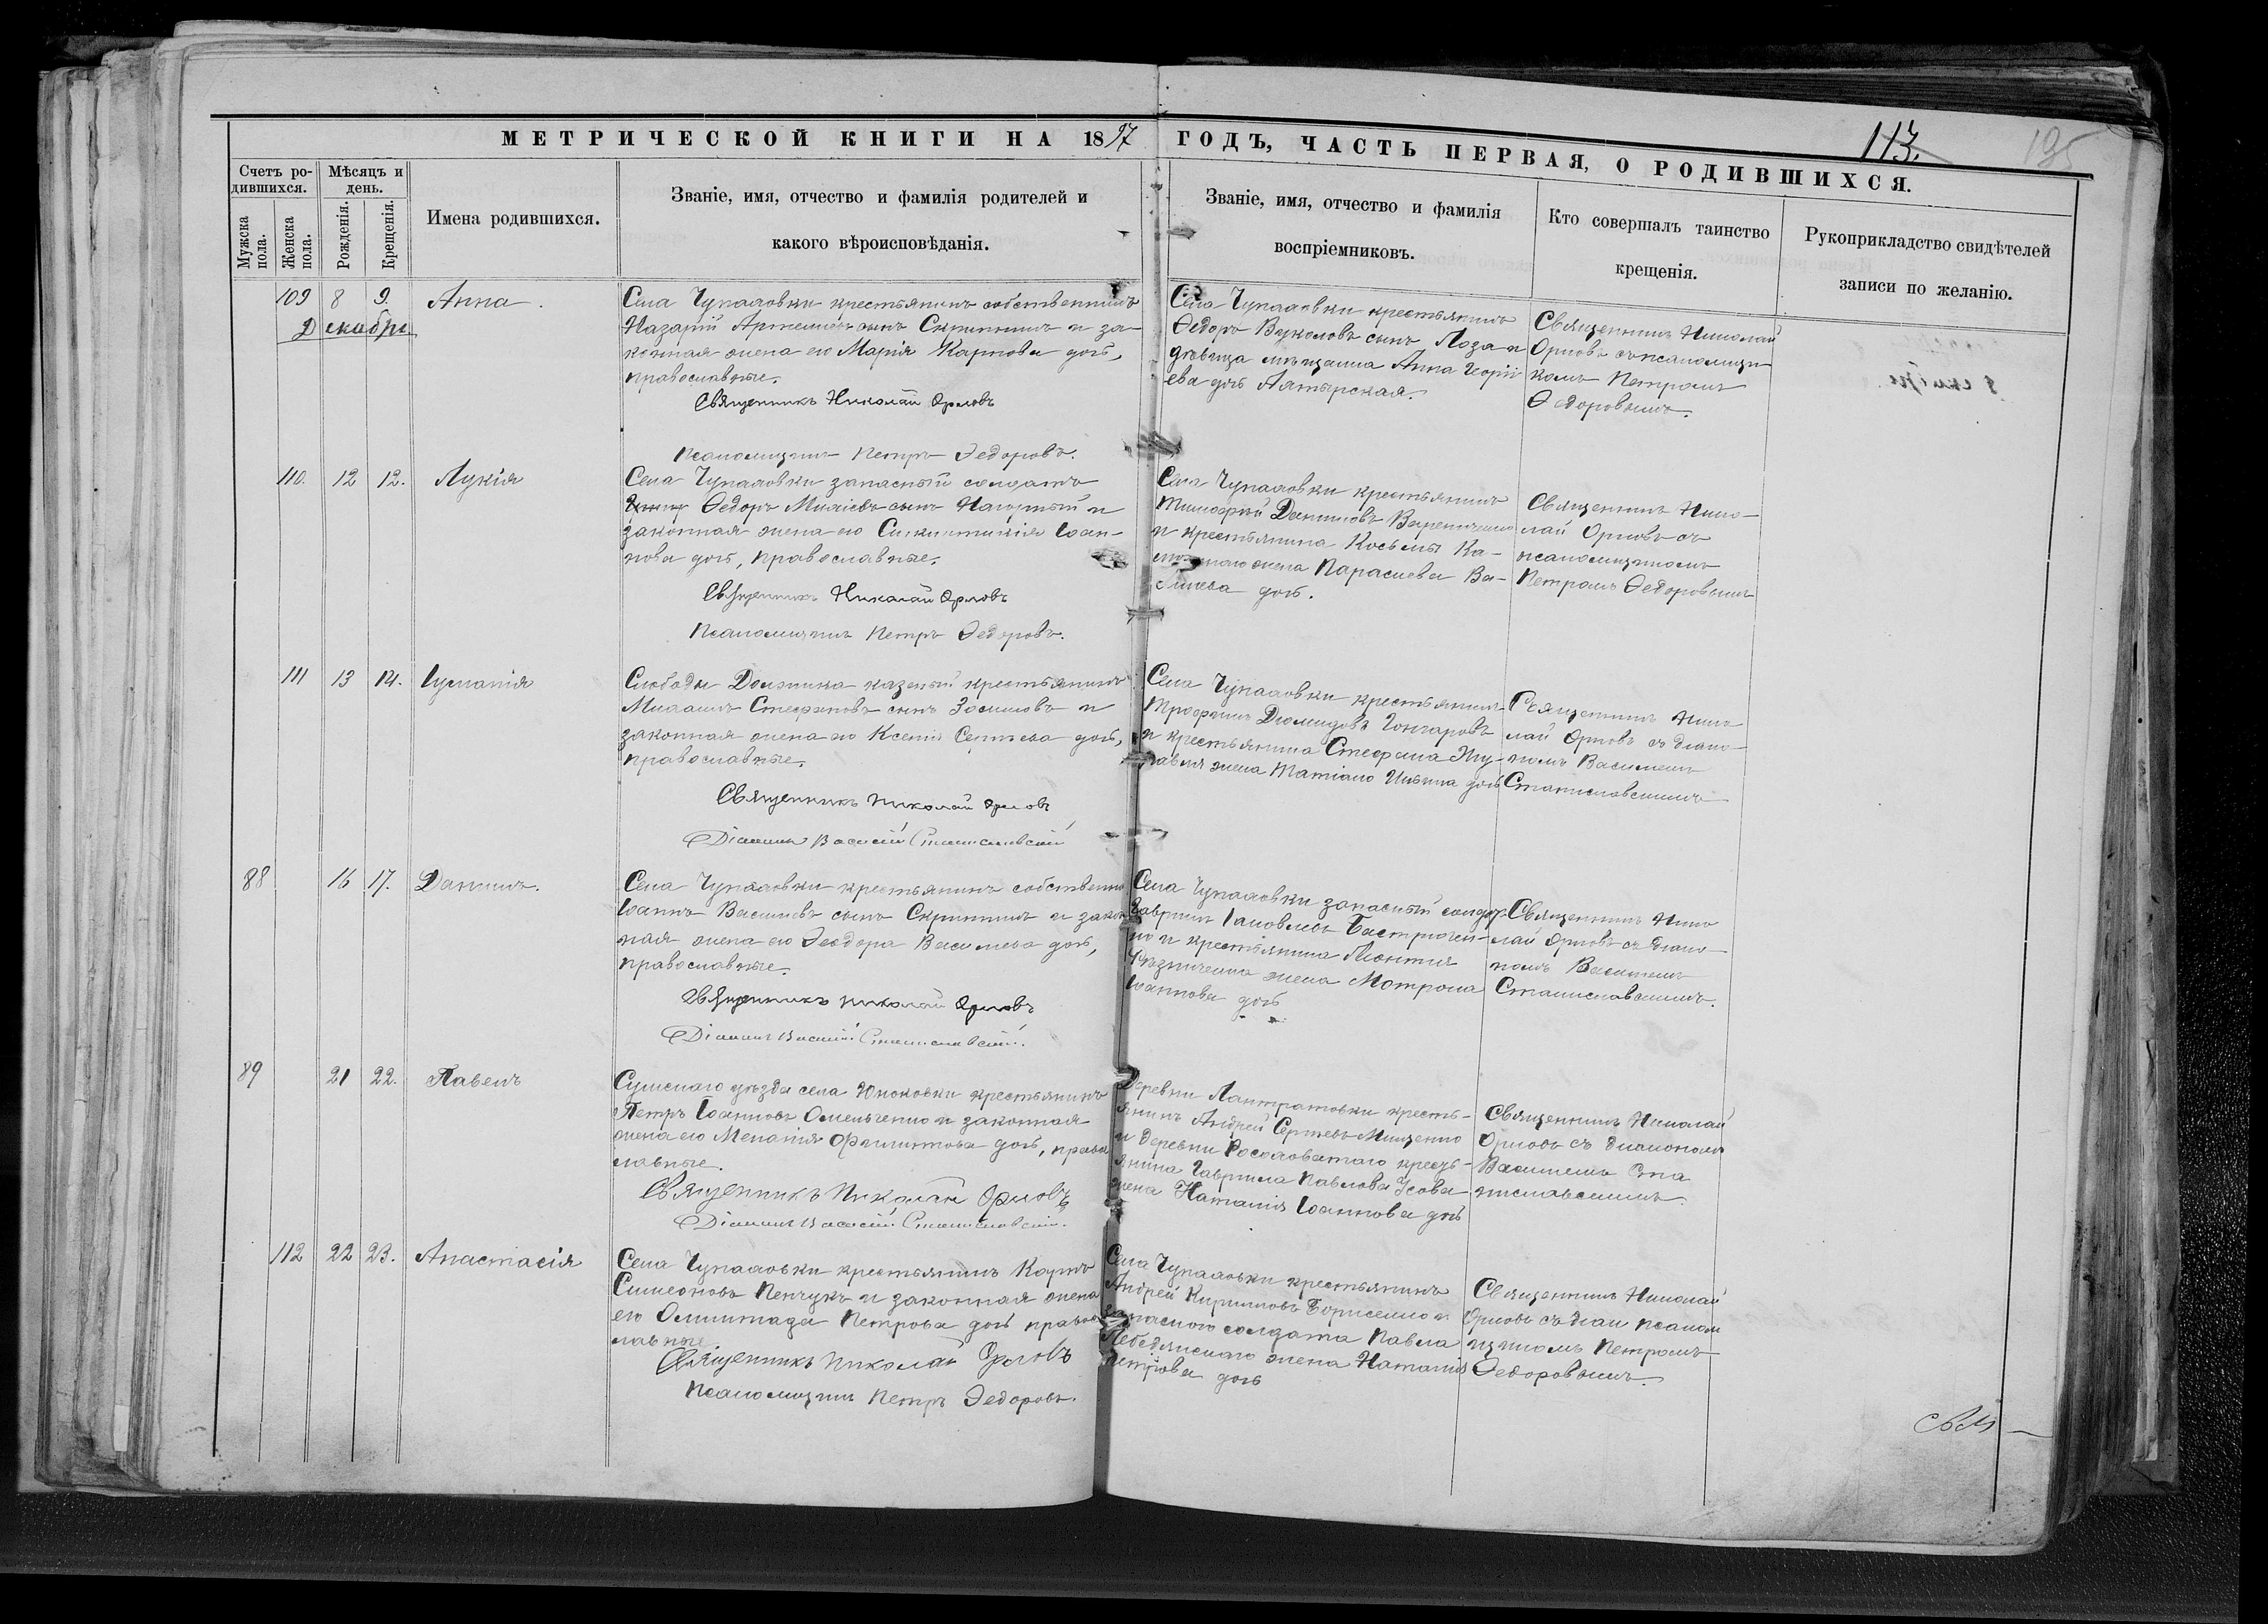 МЕТРИЧЕСКОЙ КНИГИ НА 1897 ГОДЪ, ЧАСТЬ ПЕРВАЯ, О РОДИВШИХСЯ.
113.
195
Счетъ ро-
дившихся.
Мужска пола.
Женска пола.
Мѣсяцъ и
день.
Рожденія.
Крещенія.
Имена родившихся.
Званіе, имя, отчество и фамилія родителей и
какого вѣроисповѣданія.
Званіе, имя, отчество и фамилія
воспріемниковъ.
Кто совершалъ таинство
крещенія.
Рукоприкладство свидѣтелей
записи по желанію.
109 8 9. Анна
Декабрь
Села Чупаховки крестьянинъ собственникъ
Назарій Артемовъ сынъ Скрипникъ и за-
конная жена его Марія Карпова дочь,
православные.
Священникъ Николай Орловъ
Псаломщикъ Петръ Федоровъ.
Села Чупаховки крестьянинъ
Ѳедоръ Вуколовъ сынъ Лоза и
дѣвица мѣщанка Анна Георгі
ева дочь Ахтырская.
Священникъ Николай
Орловъ съ псаломщи-
комъ Петромъ
Ѳедоровымъ.
110. 12 12. Лукія
Села Чупаховки запасный солдатъ
Ѳедоръ Михіевъ сынъ Нагорный и
законная жена его Синклитикія Іоан-
нова дочь, православные.
Священникъ Николай Орловъ
Псаломщикъ Петръ Ѳедоровъ.
Села Чупаховки крестьянинъ
Тимофей Даниловъ
и крестьянина Косьмы Ка-
жена Параскева Ва-
силіева дочь.
Священникъ Нико-
лай Орловъ съ
псаломщикомъ
Петромъ Ѳедоровымъ
111 13 14. Іуліанія
Слободы Должика казеный крестьянинъ
Михаилъ Стефановъ сынъ Зосимовъ и
законная жена его Ксенія Сергѣева дочь,
православные.
Священникъ Николай Орловъ
Діаконъ Василій Станиславскій
Села Чупаховки крестьянинъ
Трофимъ Діомидовъ Гончаровъ
и крестьянина Стефана Жу-
равля жена Татіана Ильина дочь
Священникъ Нико
лай Орловъ съ діако-
номъ Василіемъ
Станиславскимъ
88 16 17. Даніилъ.
Села Чупаховки крестьянинъ собственни
Іоаннъ Василіевъ сынъ Скрипникъ и закон
ная жена его Ѳеодора Василіева дочь,
православные.
Священникъ Николай Орловъ
Діаконъ Василій Станиславскій.
Села Чупаховки запасный солдат
Гавріилъ Іаковлевъ
но и крестьянина Леонтія
жена Матрона
Іоаннова дочь
Священникъ Нико
лай Орловъ съ діако-
номъ Василіемъ
Станиславскимъ.
89 21 22. Павелъ
Сумскаго уѣзда села Юноковки крестьянинъ
Петръ Іоанновъ Омельченко и законная
жена его Меланія Филиппова дочь, право
лавные.
Священникъ Николай Орловъ
Діаконъ Василій Станиславскій.
Деревни Лантратовки кресть-
янинъ Андрей Сергѣевъ Мищенко
и деревни Росоховатаго кресть-
янина Гавріила Павлова Усова
жена Наталія Іоаннова дочь
Священникъ Николай
Орловъ съ діакономъ
Василіемъ Ста
ниславскимъ
112 22 23. Анастасія
Села Чупаховки крестьянинъ Карпъ
Симеоновъ Пенчукъ и законная жена
его Олимпіада Петрова дочь право
лавные
Священникъ Николай Орловъ
Псаломщикъ Петръ Федоровъ.
Села Чупаховки крестьянинъ
Андрей Кирилловъ Борисенко и
запасного солдата Павла
Лебединскаго жена Наталія
Петрова дочь
Священникъ Николай
Орловъ псалом
щикомъ Петромъ
Ѳедоровымъ.